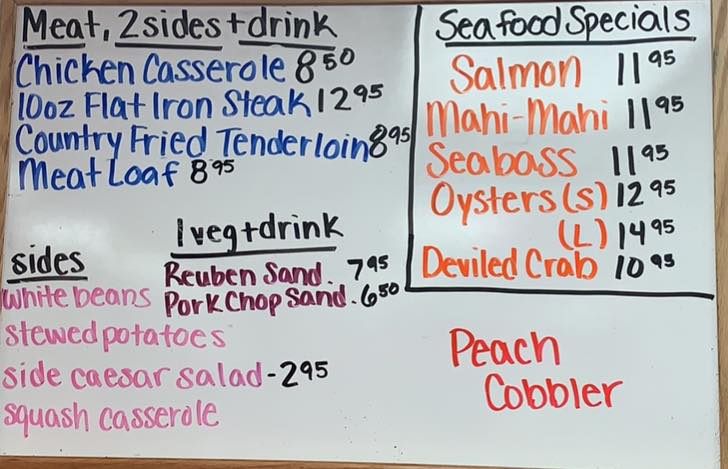 Meat, 2sides+drink
Chicken Casserole 8 50
10oz Flat Iron Steak 12 95
Country Fried Tenderloin 8 95
Meat Loaf 8 95
1 veg+drink
Reuben Sand. 7 95
Pork Chop Sand. 6 50
sides
white beans
stewed potatoes
side caesar salad - 2 95
squash casserole
Seafood Specials
Salmon 11 95
Mahi-Mahi 11 95
Seabass 11 95
Oysters (s) 12 95
(L) 14 95
Deviled Crab 10 95
Peach
Cobbler